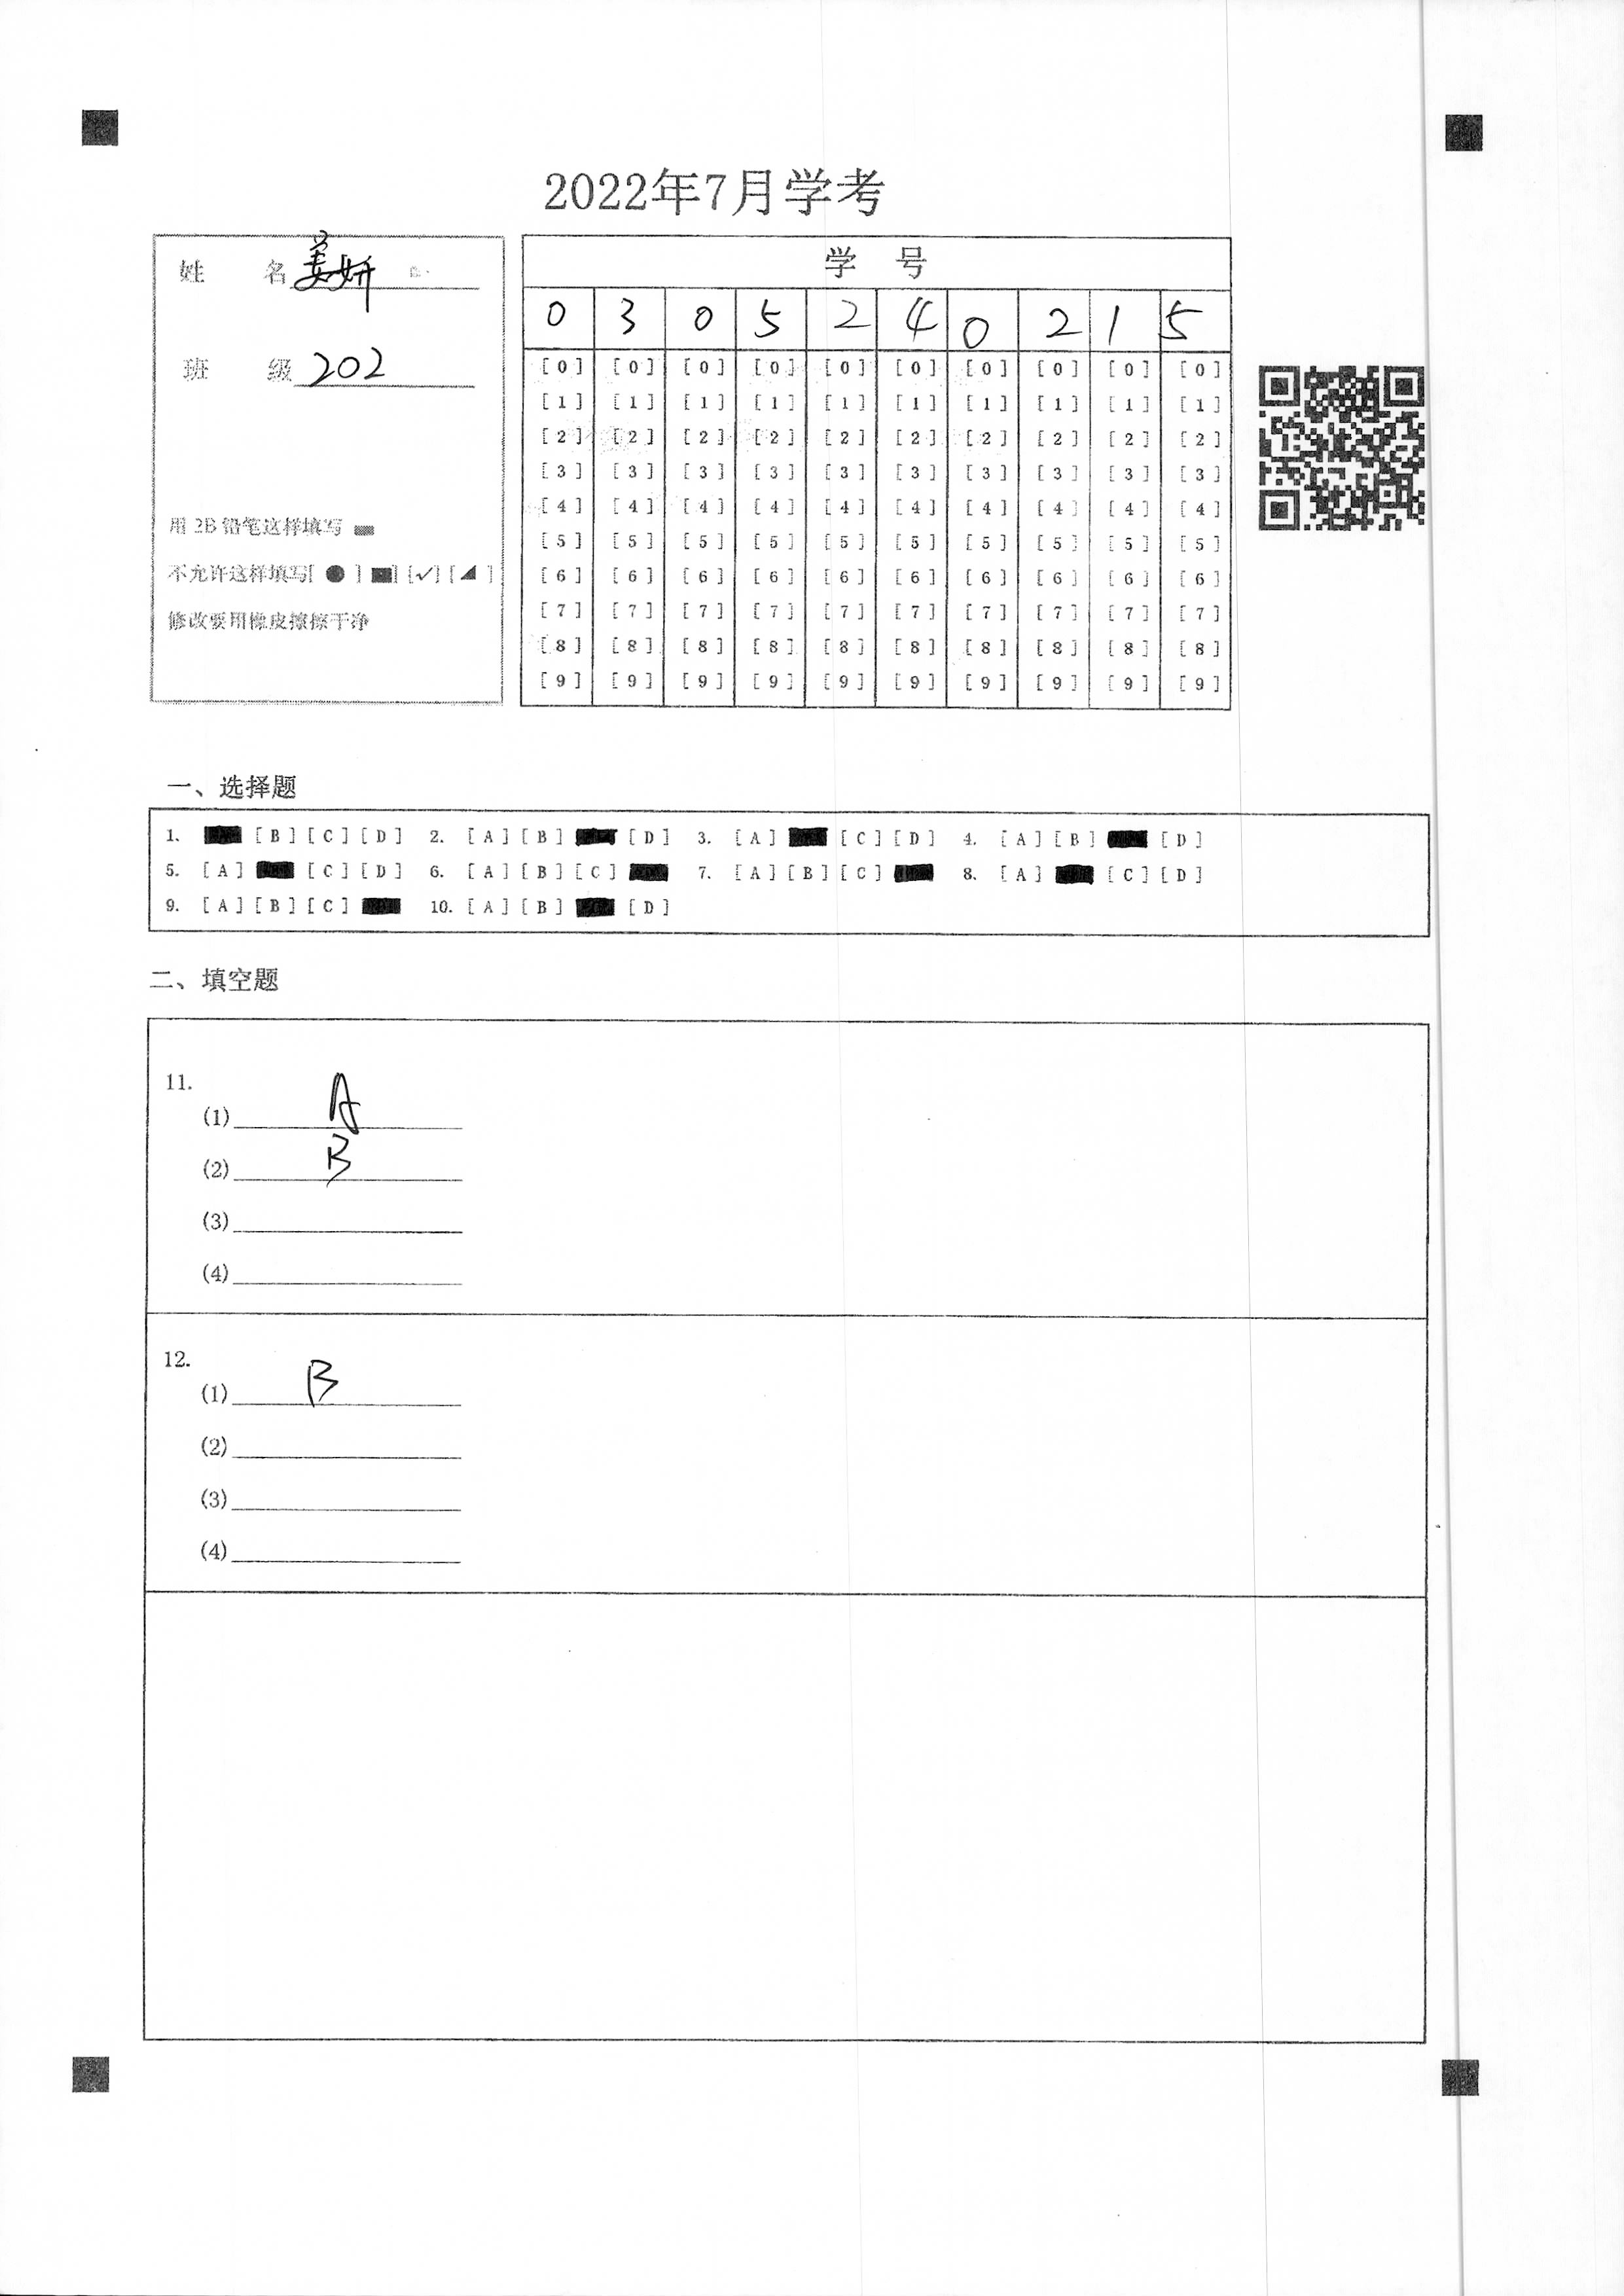 2022年7月学考
姓 名 姜妍
班 级 202
用 2B 铅笔这样填写
不允许这样填写[ ● ] ■] [✓] [◢ ]
修改要用橡皮擦擦干净
学 号
0 3 0 5 2 4 0 2 1 5
[0] [0] [0] [0] [0] [0] [0] [0] [0] [0]
[1] [1] [1] [1] [1] [1] [1] [1] [1] [1]
[2] [2] [2] [2] [2] [2] [2] [2] [2] [2]
[3] [3] [3] [3] [3] [3] [3] [3] [3] [3]
[4] [4] [4] [4] [4] [4] [4] [4] [4] [4]
[5] [5] [5] [5] [5] [5] [5] [5] [5] [5]
[6] [6] [6] [6] [6] [6] [6] [6] [6] [6]
[7] [7] [7] [7] [7] [7] [7] [7] [7] [7]
[8] [8] [8] [8] [8] [8] [8] [8] [8] [8]
[9] [9] [9] [9] [9] [9] [9] [9] [9] [9]
一、选择题
1. [B] [C] [D] 2. [A] [B] [D] 3. [A] [C] [D] 4. [A] [B] [D]
5. [A] [C] [D] 6. [A] [B] [C] 7. [A] [B] [C] 8. [A] [C] [D]
9. [A] [B] [C] 10. [A] [B] [D]
二、填空题
11.
(1) A
(2) B
(3)
(4)
12.
(1) B
(2)
(3)
(4)